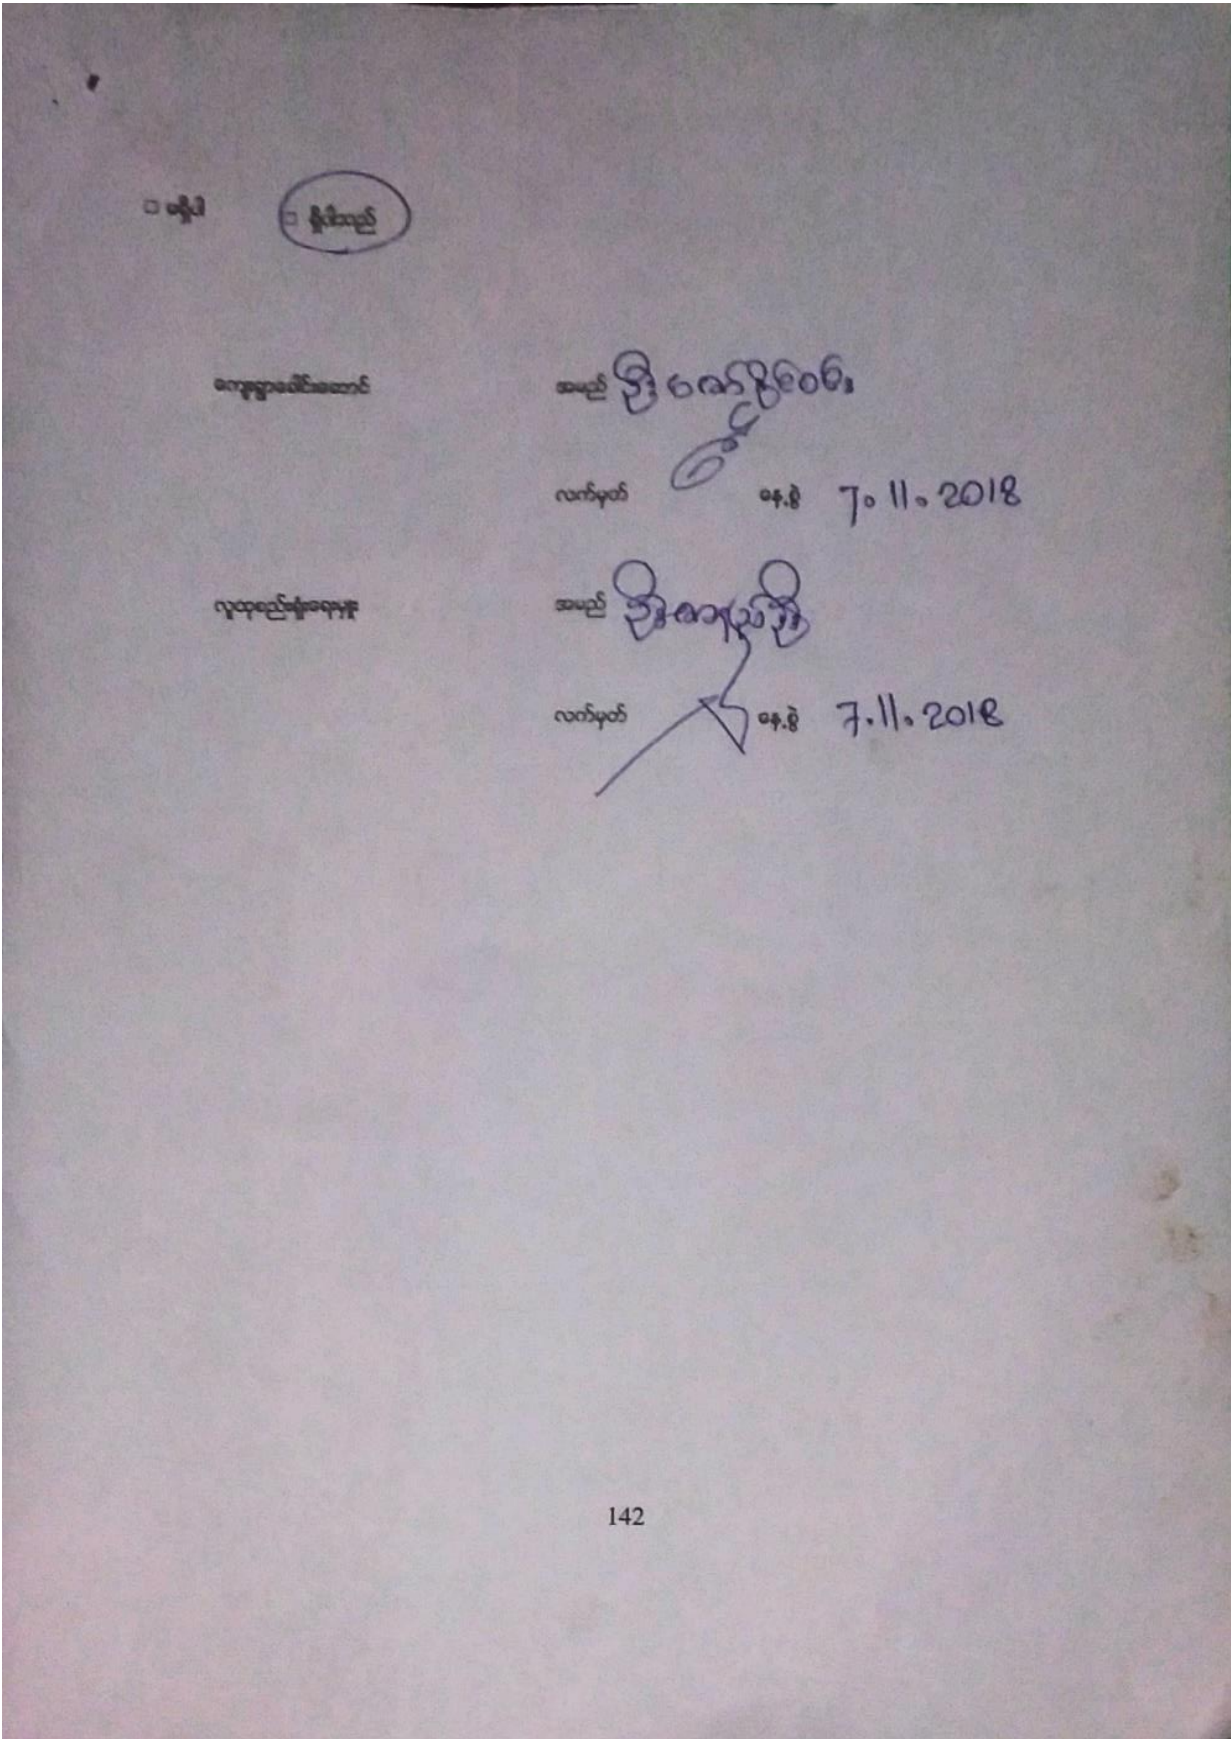 □ မရှိပါ □ ရှိပါသည်
ကျေးရွာခေါင်းဆောင် အမည် ဦး
လက်မှတ် နေ့စွဲ 7.11.2018
လူထုစည်းရုံးရေးမှူး အမည် ဦး
လက်မှတ် နေ့စွဲ 7.11.2018
142